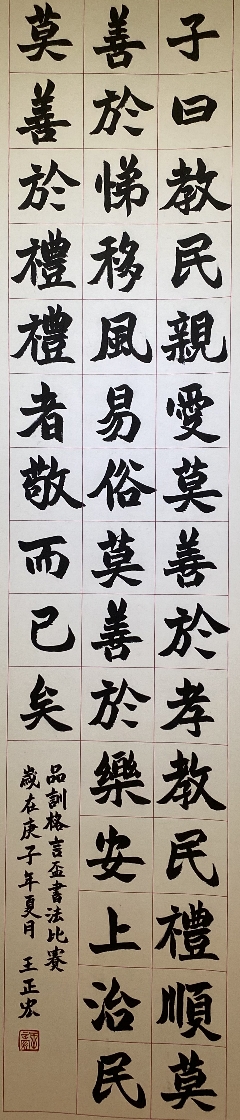 子曰教民親愛莫善於孝教民禮順莫
善於悌移風易俗莫善於樂安上治民
莫善於禮禮者敬而已矣
品訓格言盃書法比賽
歲在庚子年夏月 王正宏